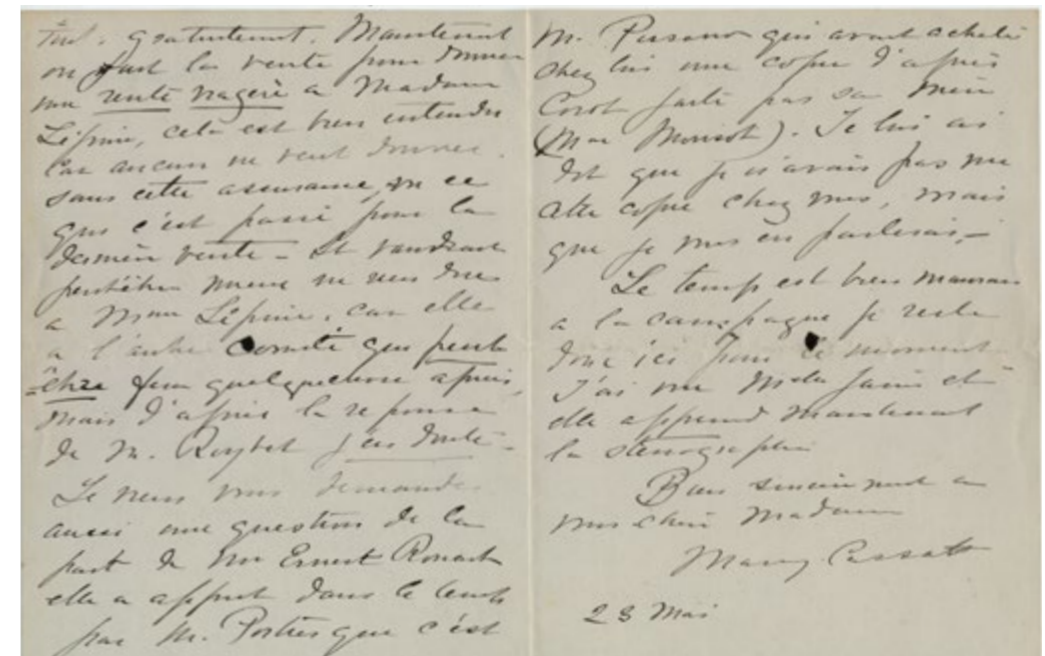 tout. gratuitement. Maintenant
on fait la vente pour donner
une rente viagère a Madame
Lépine, cela est bien entendu
Car aucun ne veut donner
sans cette assurance, vu ce
qui c'est passé pour la
dernière vente - Il vaudrait
peutêtre mieux ne rien dire
a Mme Lépine, car elle
a l'autre Comité qui peut
-être fera quelquechose après,
mais d'après la reponse
de M. Roybet j'en doute -
Je viens vous demander
aussi une question de la
part de Me Ernest Rouart
elle a appris dans le temps
par M. Portier que c'est
M. Personn qui avait acheté
chez lui une copie d'après
Corot faite par sa mère
(Mme Morisot). Je lui ai
dit que je n'avais pas vu
cette copie chez vous, mais
que je vous en parlerais, -
Le temps est bien mauvais
a la campagne je reste
donc ici pour le moment
J'ai vu et
elle apprend maintenant
la stenographie
Bien sincèrement a
vous chère Madame
Mary Cassatt
23 Mai